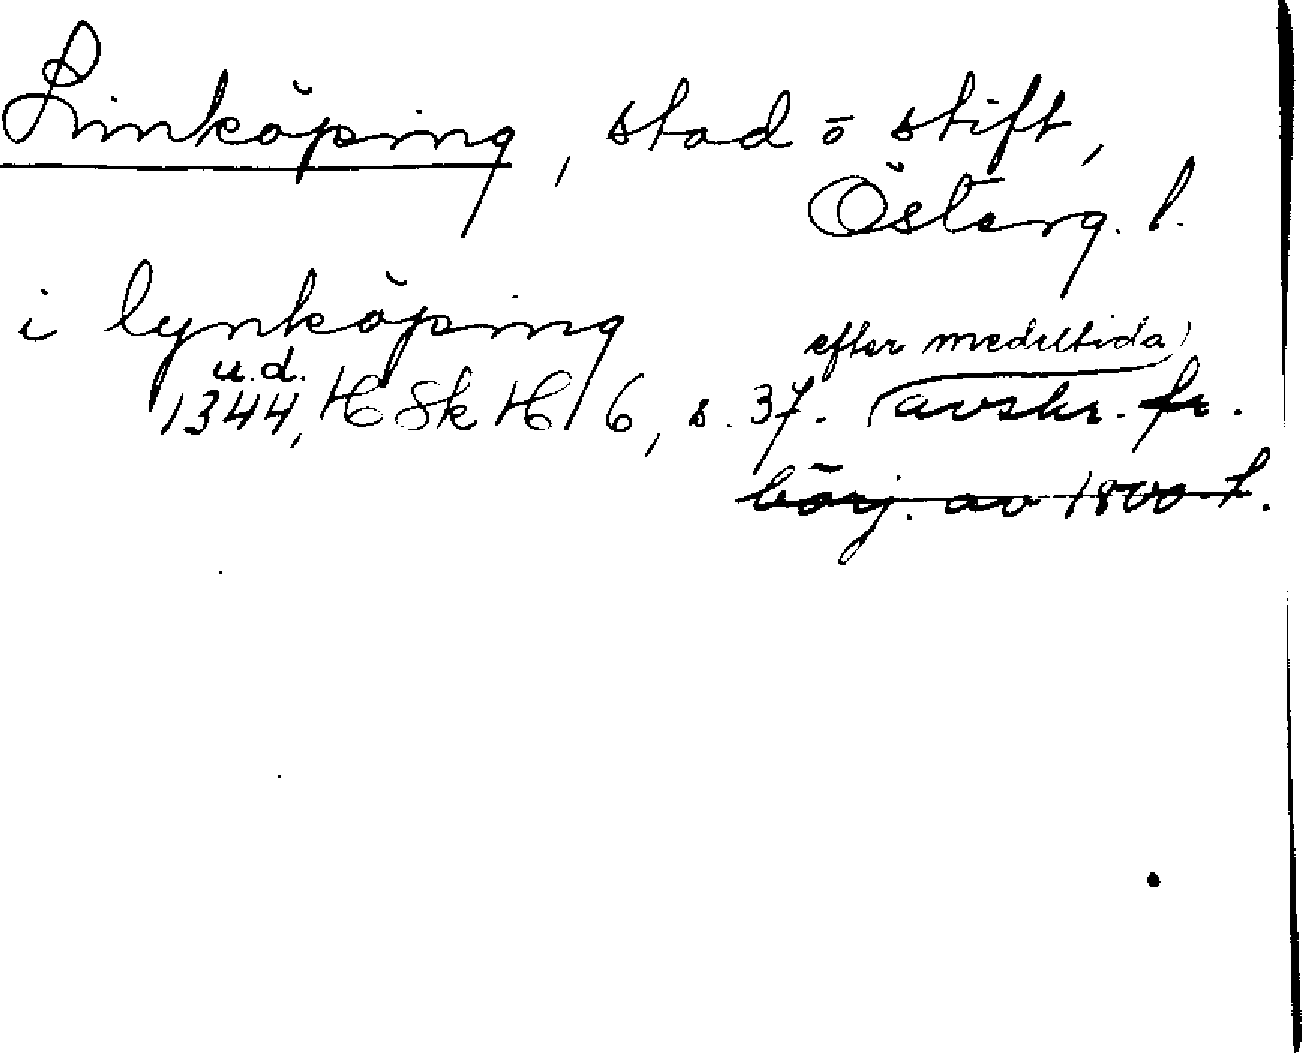 Linköping, stad o stift,
Österg. l.
i lynköping
u.d.
1344, HSkH 6, s. 37.
efter medeltida)
(avskr. fr.
börj. av 1800-t.